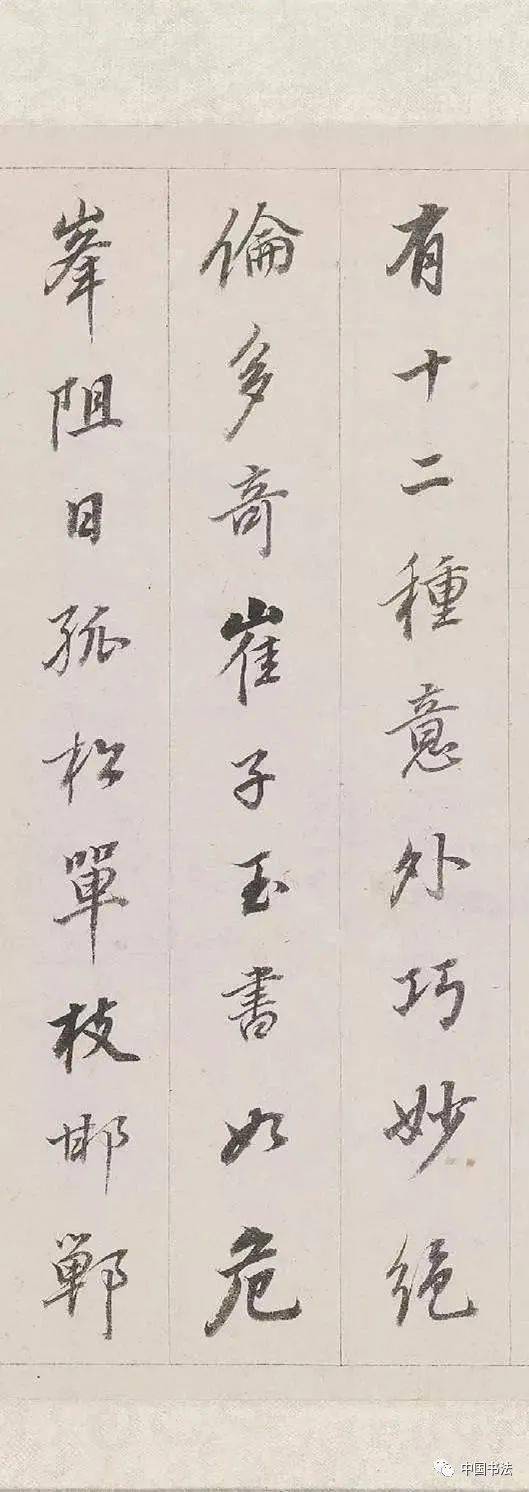 有十二種意外巧妙絶
倫多奇崔子玉書如危
峯阻日孤松單枝邯鄲
中国书法